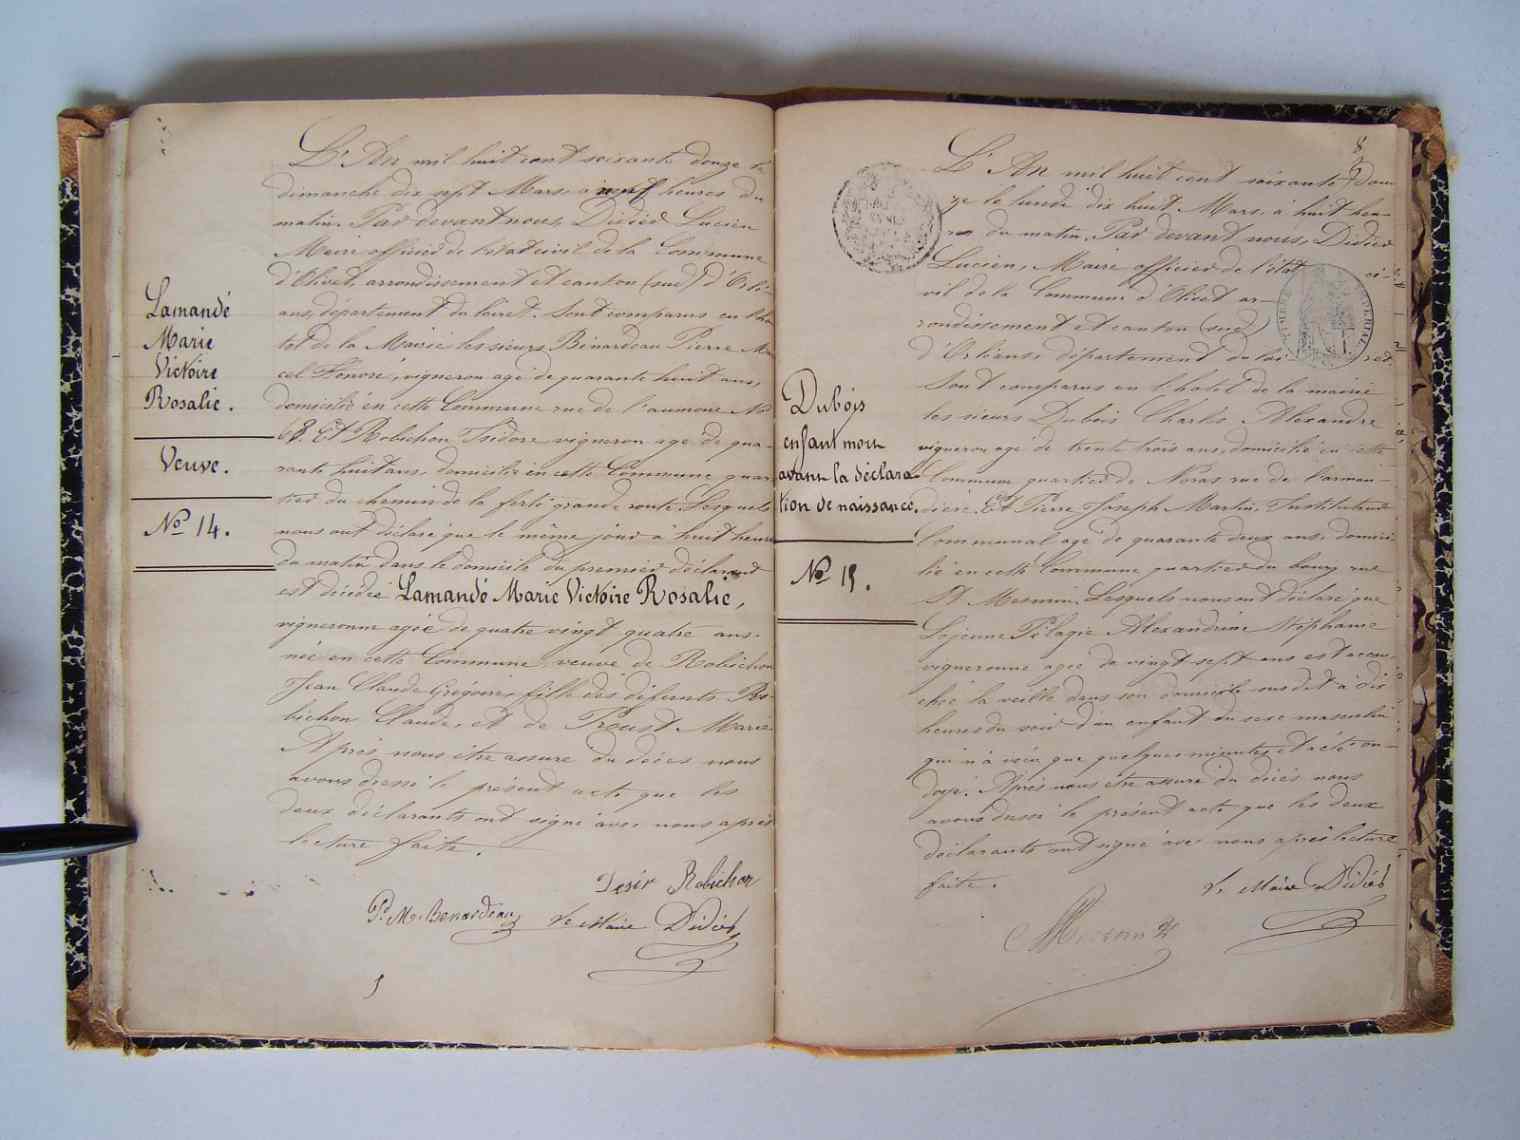 Lamandé
Marie
Victoire
Rosalie.
Veuve.
No 14.
L'An mil huit cent soixante douze le
dimanche dix sept Mars, à neuf heures du
matin. Par devant nous, Didier Lucien
Maire officier de l'état civil de la Commune
d'Olivet, arrondissement et canton (sud) d'Orlé-
ans, département du loiret. Sont comparus en l'ho-
tel de la Mairie les sieurs Benardeau Pierre Mar
cel Honoré, vigneron agé de quarante huit ans,
domicilié en cette Commune rue de l'aumone No
68. Et Robichon Isidore vigneron agé de qua-
rante huit ans, domicilié en cette Commune quar
tier du chemin de la ferté grande route. Lesquels
nous ont déclaré que le même jour à huit heures
du matin dans le domicile du premier déclarant
est décédée Lamandé Marie Victoire Rosalie,
vigneronne agée de quatre vingt quatre ans.
née en cette Commune, veuve de Robichon
Jean Claude Grégoire, fille des défunts Ro-
bichon Claude, et de Proust Marie
Après nous être assuré du décès nous
avons dressé le présent acte que les
deux déclarants ont signé avec nous après
lecture faite.
Robichon
P. M. Benardeau Le Maire Didier
8
Dubois
enfant mort
avant la déclara
tion de naissance.
No 15.
L'An mil huit cent soixante Dou
ze le lundi dix huit Mars, à huit heu-
res du matin. Par devant nous, Didier
Lucien, Maire officier de l'état ci-
vil de la Commune d'Olivet ar-
rondissement et canton (sud)
d'Orléans, département du loiret.
Sont comparus en l'hotel de la mairie
les sieurs Dubois Charles Alexandre
vigneron agé de trente trois ans, domicilié en cette
Commune quartier de Noras rue de
Et Pierre Joseph Martin, Instituteur
Communal agé de quarante deux ans, domici
lié en cette Commune quartier du bourg rue
St Mesmin. Lesquels nous ont déclaré que
Lejeune Pélagie Alexandrine Stéphanie
vigneronne agée de vingt sept ans est accou
chée la veille dans son domicile susdit à dix
heures du soir d'un enfant du sexe masculin
qui n'a vécu que quelques minutes et a été on-
doyé. Après nous être assuré du décès nous
avons dressé le présent acte que les deux
déclarants ont signé avec nous après lecture
faite.
Le Maire Didier